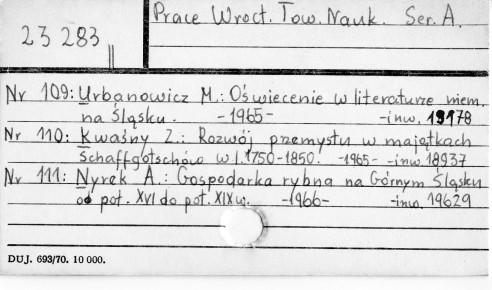 23 283
Prace Wrocł. Tow. Nauk. Ser. A.
Nr 109: Urbanowicz M.: Oświecenie w literaturze niem.
na Śląsku. -1965- -inw. 19178
Nr 110: Kwaśny Z.: Rozwój przemysłu w majątkach
Schaffgotschów w l. 1750-1850. -1965- -inw. 18937
Nr 111: Nyrek A.: Gospodarka rybna na Górnym Śląsku
od poł. XVI do poł. XIX w. -1966- -inw. 19629
DUJ. 693/70. 10 000.